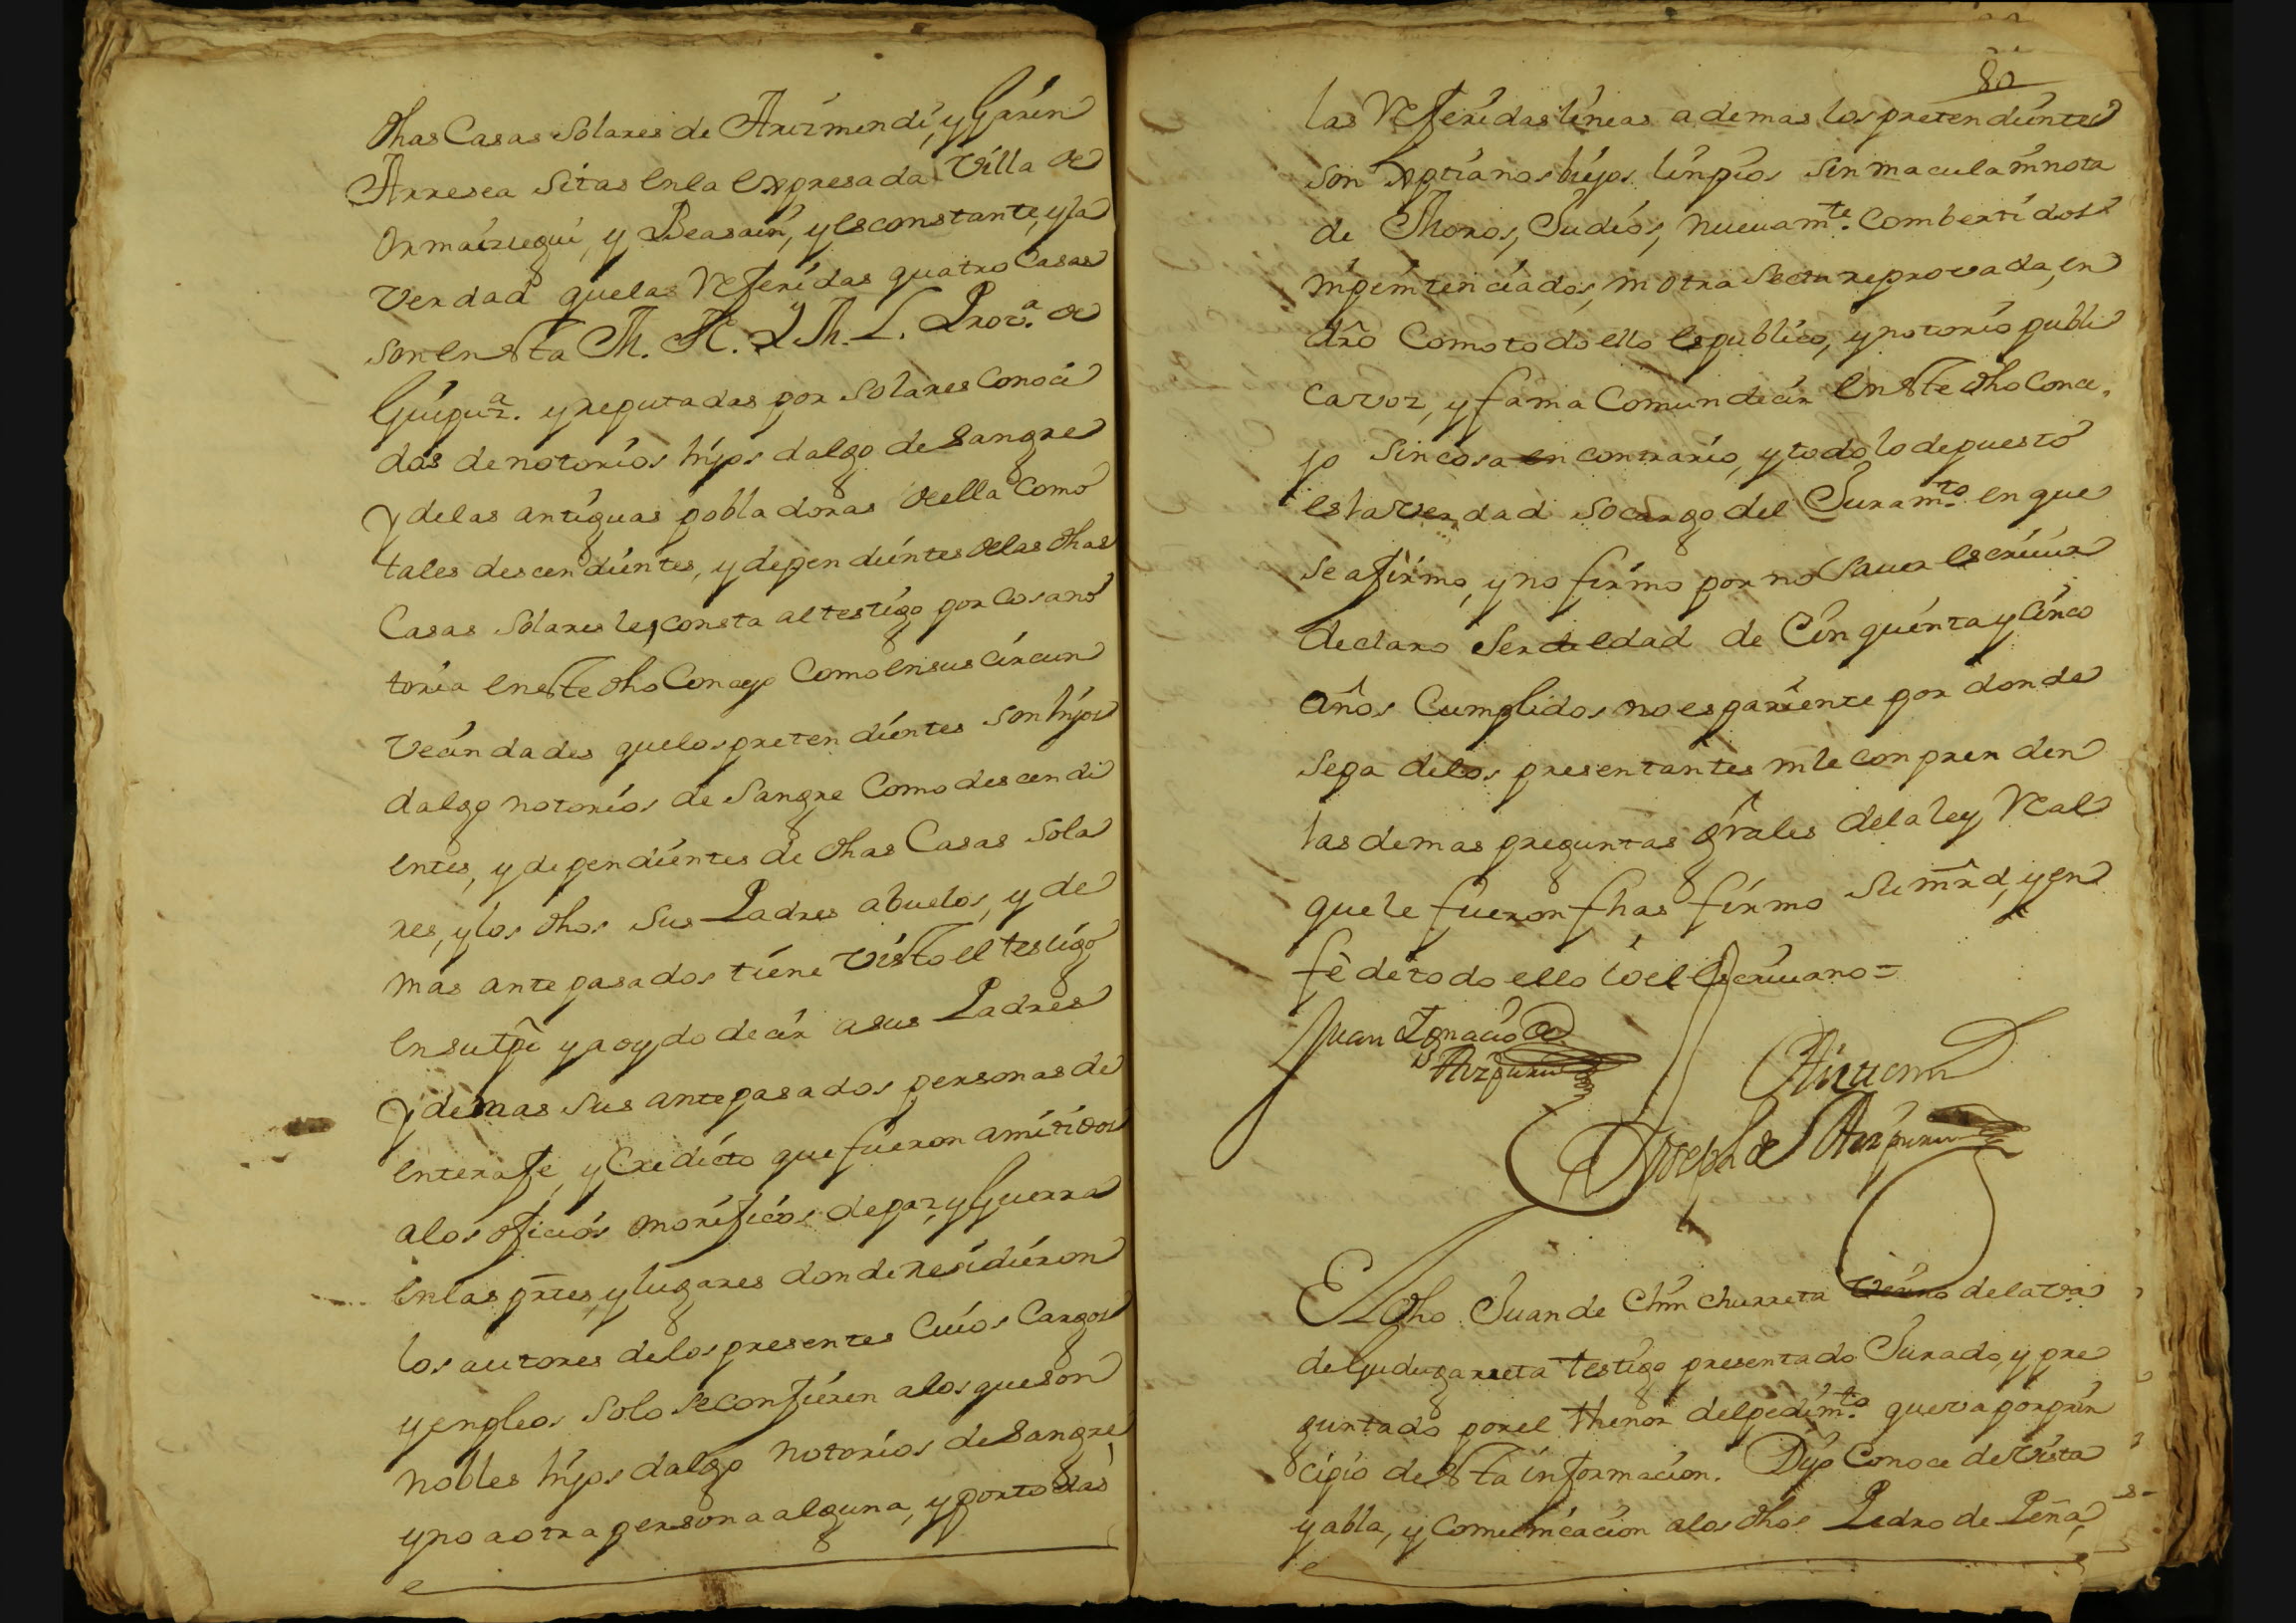 dhas Casas Solares de Arizmendi, y Garin
Arresea sitas en la expresada Villa de
Ormaiztegui, y Beasain, y es constante, y la
Verdad que las Referidas quatro Casas
son en esta M. N. Y M. L. Prov.a de
Guipuz.a y reputadas por Solares conoci
dos de notorios hijos dalgo de Sangre
Y de las antiguas pobladoras de ella como
tales descendientes, y dependientes de las dhas
Casas Solares les consta al testigo por cosa no
toria en este dho Concejo como en sus circun
vecindades que los pretendientes son hijos
dalgo notorios de Sangre como descendi
entes, y dependientes de dhas Casas Sola
res, y los dhos sus Padres abuelos, y de
mas antepasados tiene visto el testigo
en su tpo y a oydo decir a sus Padres
Y demas sus antepasados personas de
entera fe, y credicto que fueron amitidos
a los oficios onorificos de paz, y Guerra
en las ptes, y lugares donde residieron
los autores de los presentes cuios Cargos
y enpleos solo se confieren a los que son
nobles hijos dalgo notorios de Sangre
y no a otra persona alguna, y por todas
80
las Referidas lineas ademas los pretendientes
son xptianos biejos linpios sin macula ni nota
de Moros, Judios, nuevam.te combertidos
ni penitenciados, ni otra secta reprovada, en
dro como todo ello es publico, y notorio publi
ca voz, y fama comun decir en este dho Conce,
jo sin cosa en contrario, y todo lo depuesto
es la verdad so cargo del Juram.to en que
se afirmo, y no firmo por no saver escrivir
declaro ser de edad de Cinquenta y Cinco
años cumplidos no es pariente por donde
sepa de los presentantes ni le conprenden
las demas preguntas grales de la ley Real
que le fueron fhas firmo su mrd, y en
fe de todo ello io el Escrivano=
Juan Ignacio de
Aizpuru
Joseph de Aizpuru
El dho Juan de Chinchurreta vecino de la tra
de Gudugarreta testigo presentado Jurado, y pre
guntado por el thenor del pedim.to que va por prin
cipio de esta informacion. Dijo conoce de vista
y abla, y comunicacion a los dhos Pedro de Peña,